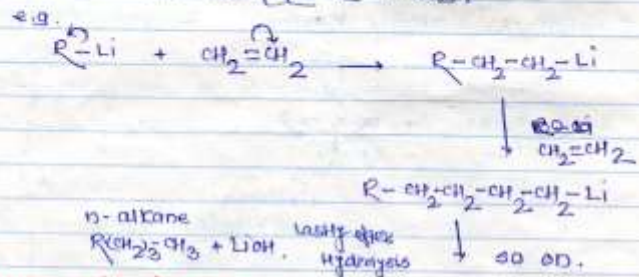 e.g.
R-Li + CH2=CH2 → R-CH2-CH2-Li
↓ CH2=CH2
R-CH2-CH2-CH2-CH2-Li
n-alkane
R(CH2)3-CH3 + LiOH. Lastly after Hydrolysis ↓ so on.